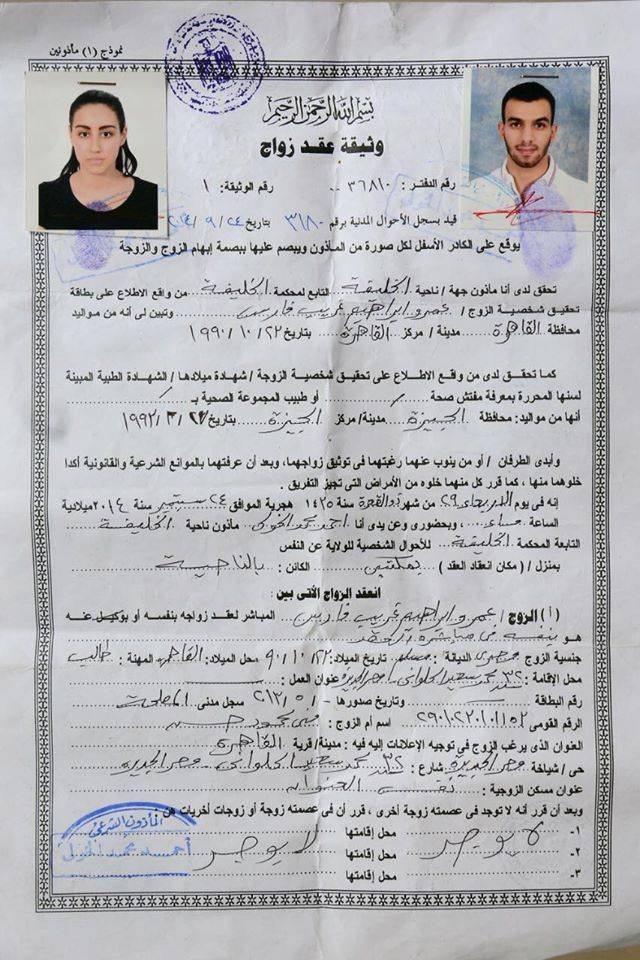 نموذج (١) مأذونين
بسم الله الرحمن الرحيم
وثيقة عقد زواج
رقم الدفتر : ٣٦٨١٠ رقم الوثيقة : ١
قيد بسجل الأحوال المدنية برقم ٣٦٨٠ بتاريخ ٢٤ / ٩ /
يوقع على الكادر الأسفل لكل صورة من المأذون ويبصم عليها ببصمة إبهام الزوج والزوجة
تحقق لدى أنا مأذون جهة / ناحية الخليفة التابع لمحكمة الخليفة من واقع الاطلاع على بطاقة
تحقيق شخصية الزوج / عمرو ابراهيم غريب فارس وتبين لى أنه من مواليد
محافظة القاهرة مدينة / مركز القاهرة بتاريخ ٢٢ / ١٠ / ١٩٩٠
كما تحقق لدى من واقع الاطلاع على تحقيق شخصية الزوجة / شهادة ميلادها / الشهادة الطبية المبينة
لسنها المحررة بمعرفة مفتش صحة / أو طبيب المجموعة الصحية بـ /
أنها من مواليد: محافظة الجيزة مدينة/ مركز الجيزة بتاريخ / ١٩٩٢
وأبدى الطرفان / أو من ينوب عنهما رغبتهما فى توثيق زواجهما، وبعد أن عرفتهما بالموانع الشرعية والقانونية أكدا
خلوهما منها ، كما قرر كل منهما خلوه من الأمراض التى تجيز التفريق .
إنه فى يوم الاربعاء ٢٩ من شهر ذالقعدة سنة ١٤٣٥ هجرية الموافق ٢٤ سبتمبر سنة ٢٠١٤ ميلادية
الساعة مساء ، وبحضورى وعن يدى أنا احمد محمد الخولى مأذون ناحية الخليفة
التابعة المحكمة الخليفة للأحوال الشخصية للولاية عن النفس
بمنزل / ( مكان انعقاد العقد ) بمكتبى الكائن : بالناحية
انعقد الزواج الآتى بين :
( أ ) الزوج / عمرو ابراهيم غريب فارس المباشر لعقد زواجه بنفسه أو بوكيل عنه
هو بنفسه
جنسية الزوج مصرى الديانة : مسلم تاريخ الميلاد ٢٢ / ١٠ / ٩٠ محل الميلاد: القاهرة المهنة : طالب
محل الإقامة: ٣٢ محمد سعيد الحلوانى - مصر الجديدة عنوان العمل :
رقم البطاقة وتاريخ صدورها / ٥ / ٢٠١٣ سجل مدنى المصلحة
الرقم القومى ٢٩٠١٠٢٢٠١٠١١٥٢ اسم أم الزوج : منى محمود
العنوان الذى يرغب الزوج فى توجيه الإعلانات إليه فيه : مدينة/ قرية القاهرة
حى / شياخة مصر الجديدة شارع : ٣٢ محمد سعيد الحلوانى - مصر الجديدة
عنوان مسكن الزوجية : نفس العنوان
وبعد أن قرر أنه لا توجد فى عصمته زوجة أخرى ، قرر أن فى عصمته زوجة أو زوجات أخريات هن :
١- لا يوجد محل إقامتها لا يوجد
٢- محل إقامتها
٣- محل إقامتها
المأذون الشرعى
أحمد محمد الخولى